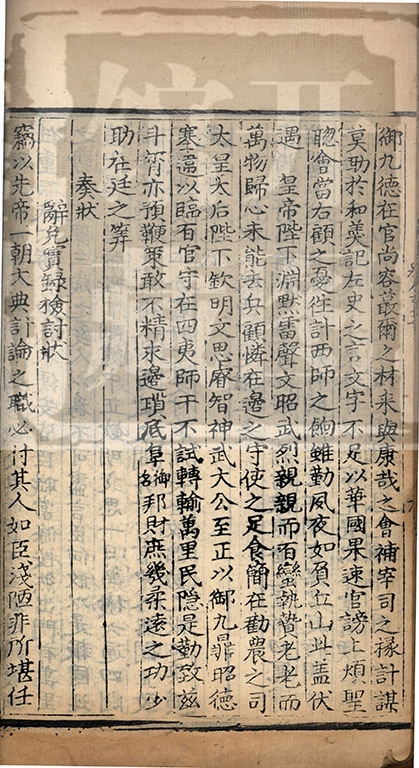 御九德在官尚容蕞爾之材来與康哉之會補宰司之掾計謀
莫助於和羹記左史之言文字不足以華國果速官謗上煩聖
聦會當右顧之憂徃計西師之餉雖勤夙夜如負丘山此盖伏
遇　皇帝陛下淵黙雷聲文昭武烈親親而百蠻執贄老老而
萬物歸心未能去兵顧憐在邊之守使之足食簡在勸農之司
太皇太后陛下欽明文思睿智神武大公至正以御九𡽪昭德
塞違以臨百官守在四夷師干不試轉輸萬里民隐是勤致兹
斗筲亦預鞭策敢不精求邊瑣底阜御名邦財庶幾柔逺之功少
助在廷之筭
奏狀
辭免實録檢討狀
竊以先帝一朝大典討論之職必付其人如臣淺陋非所堪任